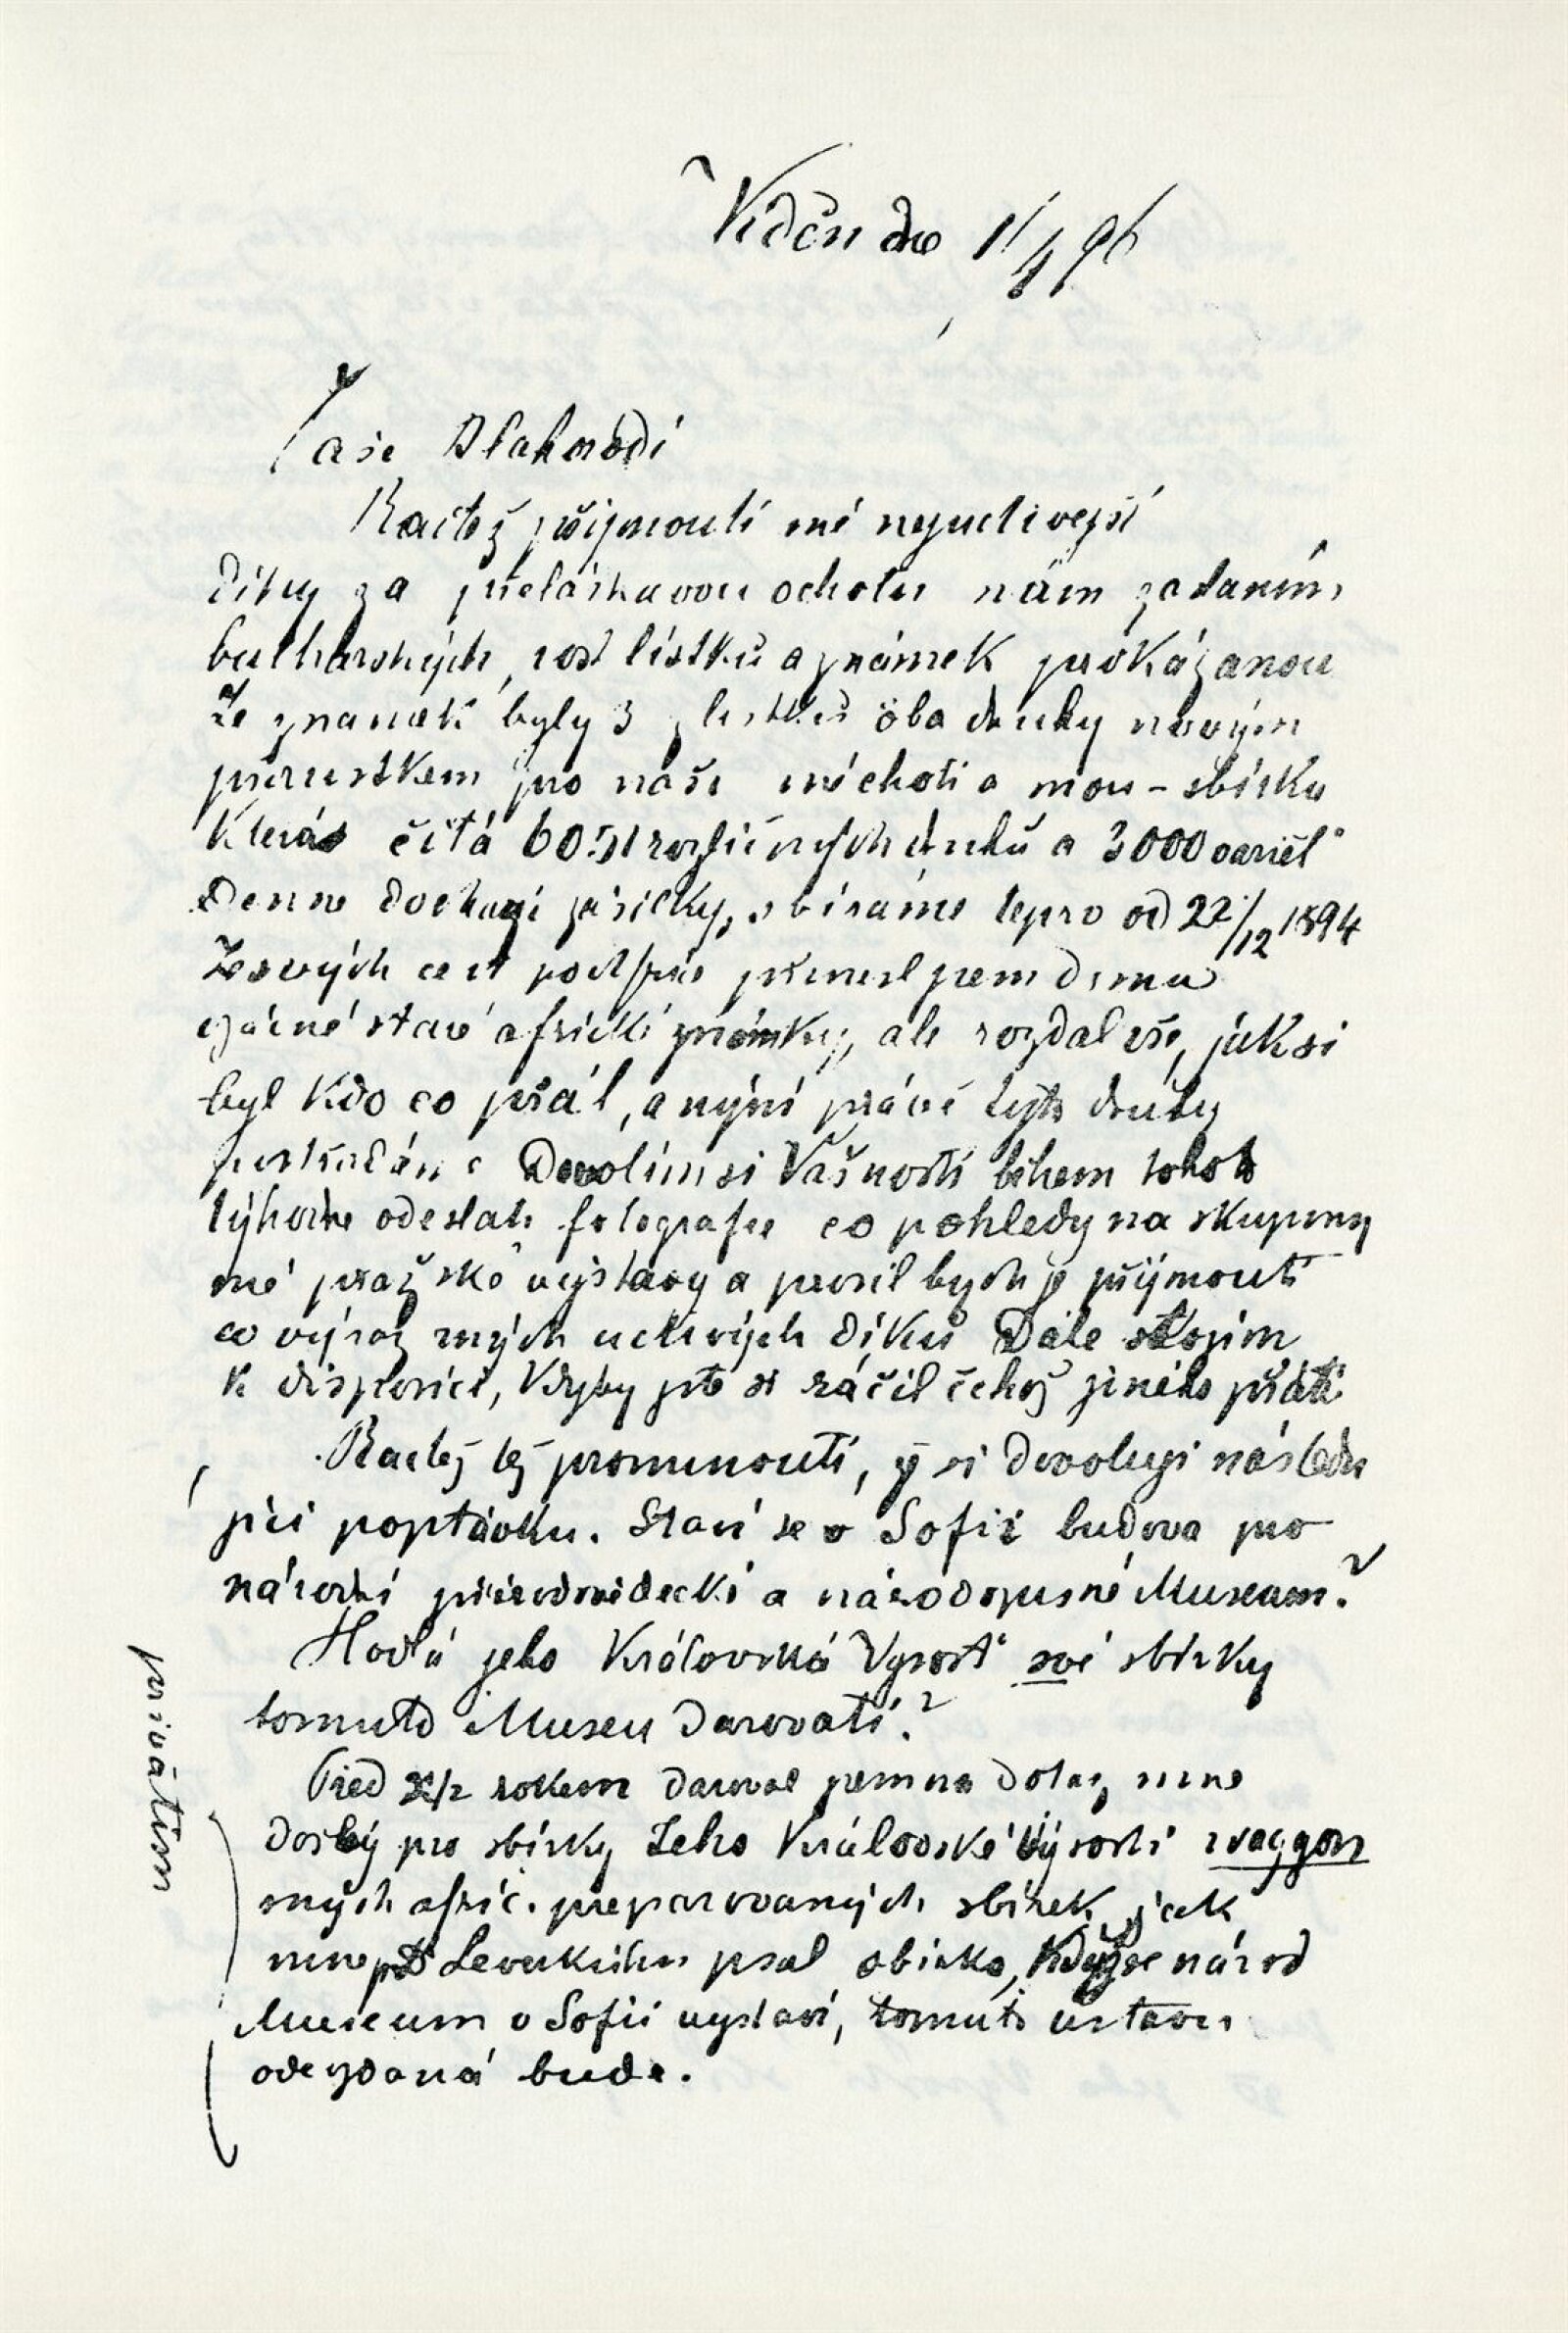 Víděn dne 1/4 96
Vaše Blahorodí
Račtež přijmouti mé nejuctivejší
díky za přeláskavou ochotu nám zadáním
bulharských, lístků a známek prokázanou
Ze znamek byly 3 z lístků oba druhy novým
přírustkem pro naši méchoti a mou - sbírku
Kteráž čítá 6051 rozličných druhů a 3000 variet
Denne docházejí zásilky, sbíráme teprv od 22/12 1894
Ze svých cest přinesl jsem domu
vzácné staré africké známky, ale rozdal vše, jak si
byl kdo co přál, a nyní právě tyto druhy
postrádám Dovolím si Vašnosti během tohoto
týhodne odeslati fotografie co pohledy na skupiny
mé pražské výstavy a prosil bych je přijmouti
co výraz mých uctivých díků Dále stojím
k disposici, Kdyby jste si ráčil čehož jiného přáti
Račtež též prominouti, že si dovoluji násled
jící poptávku. Staví se v Sofii budova pro
národní přírodovědecké a národopisné Museum?
Hodlá jeho Královská Vysost své sbírky
tomuto Museu darovati?
Před 1/2 rokem daroval jsem na dotaz mne
došlý pro sbírky Jeho Královské Výsosti waggon
mých afric. preparovaných sbírek, jak
mne p. Leverkühn psal sbírka, Když se národ
Museum v Sofii vystaví, tomuto ústavu
odevzdaná bude.
privátim